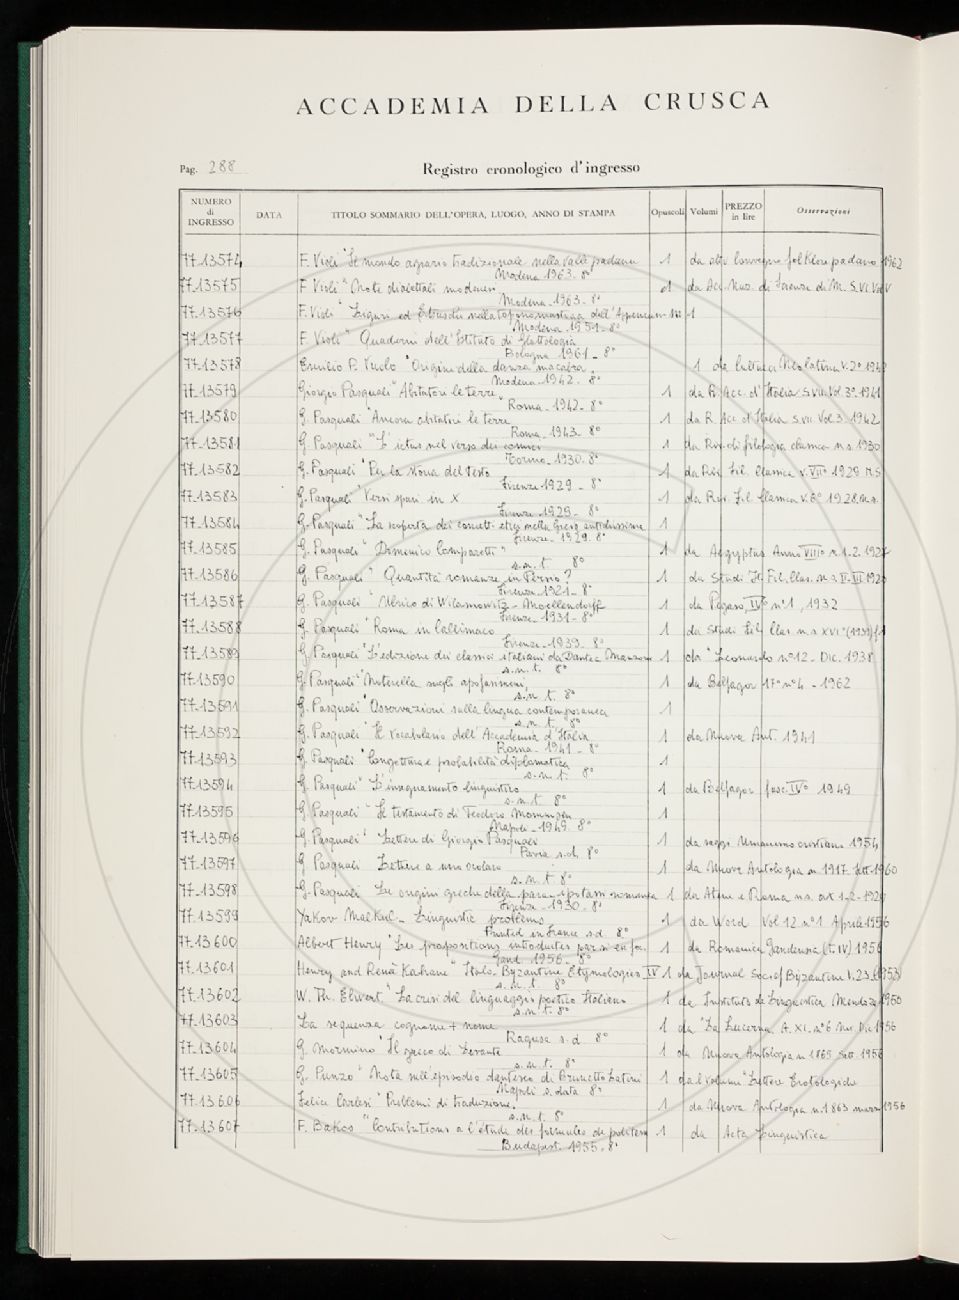 ACCADEMIA DELLA CRUSCA
Pag. 288
Registro cronologico d'ingresso
NUMERO di INGRESSO DATA TITOLO SOMMARIO DELL'OPERA, LUOGO, ANNO DI STAMPA Opuscoli Volumi PREZZO in lire Osservazioni
77-13574 F. Violi "Il mondo agrario tradizionale nella valle padana 1 folklore padano 1962
Modena 1963. 8°
77-13575 F. Violi "Note dialettali modenesi 1 da Acc. Naz. di Scienze di M. S. VI. Vol V
Modena - 1963 - 8°
77-13576 F. Violi "Liguri ed Etruschi nella toponomastica dell'Appennino 1
Modena. 1951 - 8°
77-13577 F. Violi "Quaderni dell'Istituto di Glottologia
Bologna 1961 - 8°
77-13578 Emilio P. Vuolo "Origini della danza macabra 1 da Cultura Neolatina V. 2°
Modena - 1942. 8°
77-13579 Giorgio Pasquali "Abitatori le terre" 1 da R. Acc. d'Italia S. VII. Vol. 3° - 1941
Roma - 1942 - 8°
77-13580 G. Pasquali "Ancora abitatori le terre 1 da R. Acc. d'Italia S. VII Vol 3 - 1942
Roma - 1943 - 8°
77-13581 G. Pasquali "L'ictus nel verso dei comici 1 da Riv. di filologia classica n.s. 1930
Torino - 1930. 8°
77-13582 G. Pasquali "Per la storia del testo 1 da Riv. Fil. Classica V. VII° 1929 N.S
Firenze 1929 - 8°
77-13583 G. Pasquali "Versi spari in X 1 da Riv. Fil. Classica V. 6° 1928. n.s.
Firenze - 1929 - 8°
77-13584 G. Pasquali "La scoperta dei concetti etici nella Grecia antichissima 1
Firenze - 1929. 8°
77-13585 G. Pasquali "Domenico Comparetti" 1 da Aegyptus Anno VIII° n. 1-2. 1927
s.n.t. 8°
77-13586 G. Pasquali "Quantità romanze in Persio? 1 da Studi It. Fil. Clas. n.s. II-III
Firenze - 1921 - 8°
77-13587 G. Pasquali "Ulrico di Wilamowitz-Moellendorff 1 da Pegaso, IV° n° 1, 1932
Firenze - 1931 - 8°
77-13588 G. Pasquali "Roma in Callimaco 1 da Studi Fil. Clas. n.s XVI° (1939)
Firenze - 1939 - 8°
77-13589 G. Pasquali "L'edizione dei classici italiani da Dante a Manzoni 1 da "Leonardo n° 12 - Dic. 1938
s.n.t. 8°
77-13590 G. Pasquali "Noterella sugli apofasimeni 1 da Belfagor 17° n° 4 - 1962
s.n.t. 8°
77-13591 G. Pasquali "Osservazioni sulla lingua contemporanea 1
s.n.t. 8°
77-13592 G. Pasquali "Il vocabolario dell'Accademia d'Italia 1 da Nuova Ant. 1941
Roma - 1941 - 8°
77-13593 G. Pasquali "Congettura e probabilità diplomatica 1
s.n.t. 8°
77-13594 G. Pasquali "L'insegnamento linguistico 1 da Belfagor fasc. IV° 1949
s.n.t 8°
77-13595 G. Pasquali "Il testamento di Teodoro Mommsen 1
Napoli - 1949. 8°
77-13596 G. Pasquali "Lettere di Giorgio Pasquali 1 da saggi Umanesimo cristiano 1954
Pavia s.d. 8°
77-13597 G. Pasquali Lettere a uno scolaro 1 da Nuova Antologia n 1917 Sett. 1960
s.n.t 8°
77-13598 G. Pasquali Le origini greche della para-ipotassi romanza 1 da Atene e Roma n.s. 1-2-
Firenze - 1930 - 8°
77-13599 Yakov Malkiel - Linguistic problems 1 da Word Vol 12 n° 1 Aprile 1956
Printed in France s.d. 8°
77-13600 Albert Henry "Les propositions introduites par si en fr. 1 da Romanica Gandensia (t. IV) 1956
Gand. 1956 - 8°
77-13601 Henry and Renà Kahane "Italo-Byzantine Etymologies IV 1 da Journal Soc. of Byzantine V. 23 (1953)
s.n.t. 8°
77-13602 W. Th. Elwert "La crisi del linguaggio poetico Italiano 1 da Instituto de Linguistica Mendoza 1950
s.n.t. 8°
77-13603 La sequenza cognome + nome 1 da "La Lucerna A. XI. n° 6 Nov. Dic 1956
Ragusa s.d 8°
77-13604 G. Mormino "Il greco di Levante 1 da Nuova Antologia n 1865 Sett. 1956
s.n.t. 8°
77-13605 G. Punzo "Nota sull'episodio dantesco di Brunetto Latini 1 dal volume "Lettere
Napoli s. data 8°
77-13606 Felice Carlesi "Problemi di traduzione. 1 da Nuova Antologia n. 1863 marzo 1956
s.n.t. 8°
77-13607 F. Bakos "Contributions a l'étude des formules de politesse 1 da Acta Linguistica
Budapest. 1955. 8°